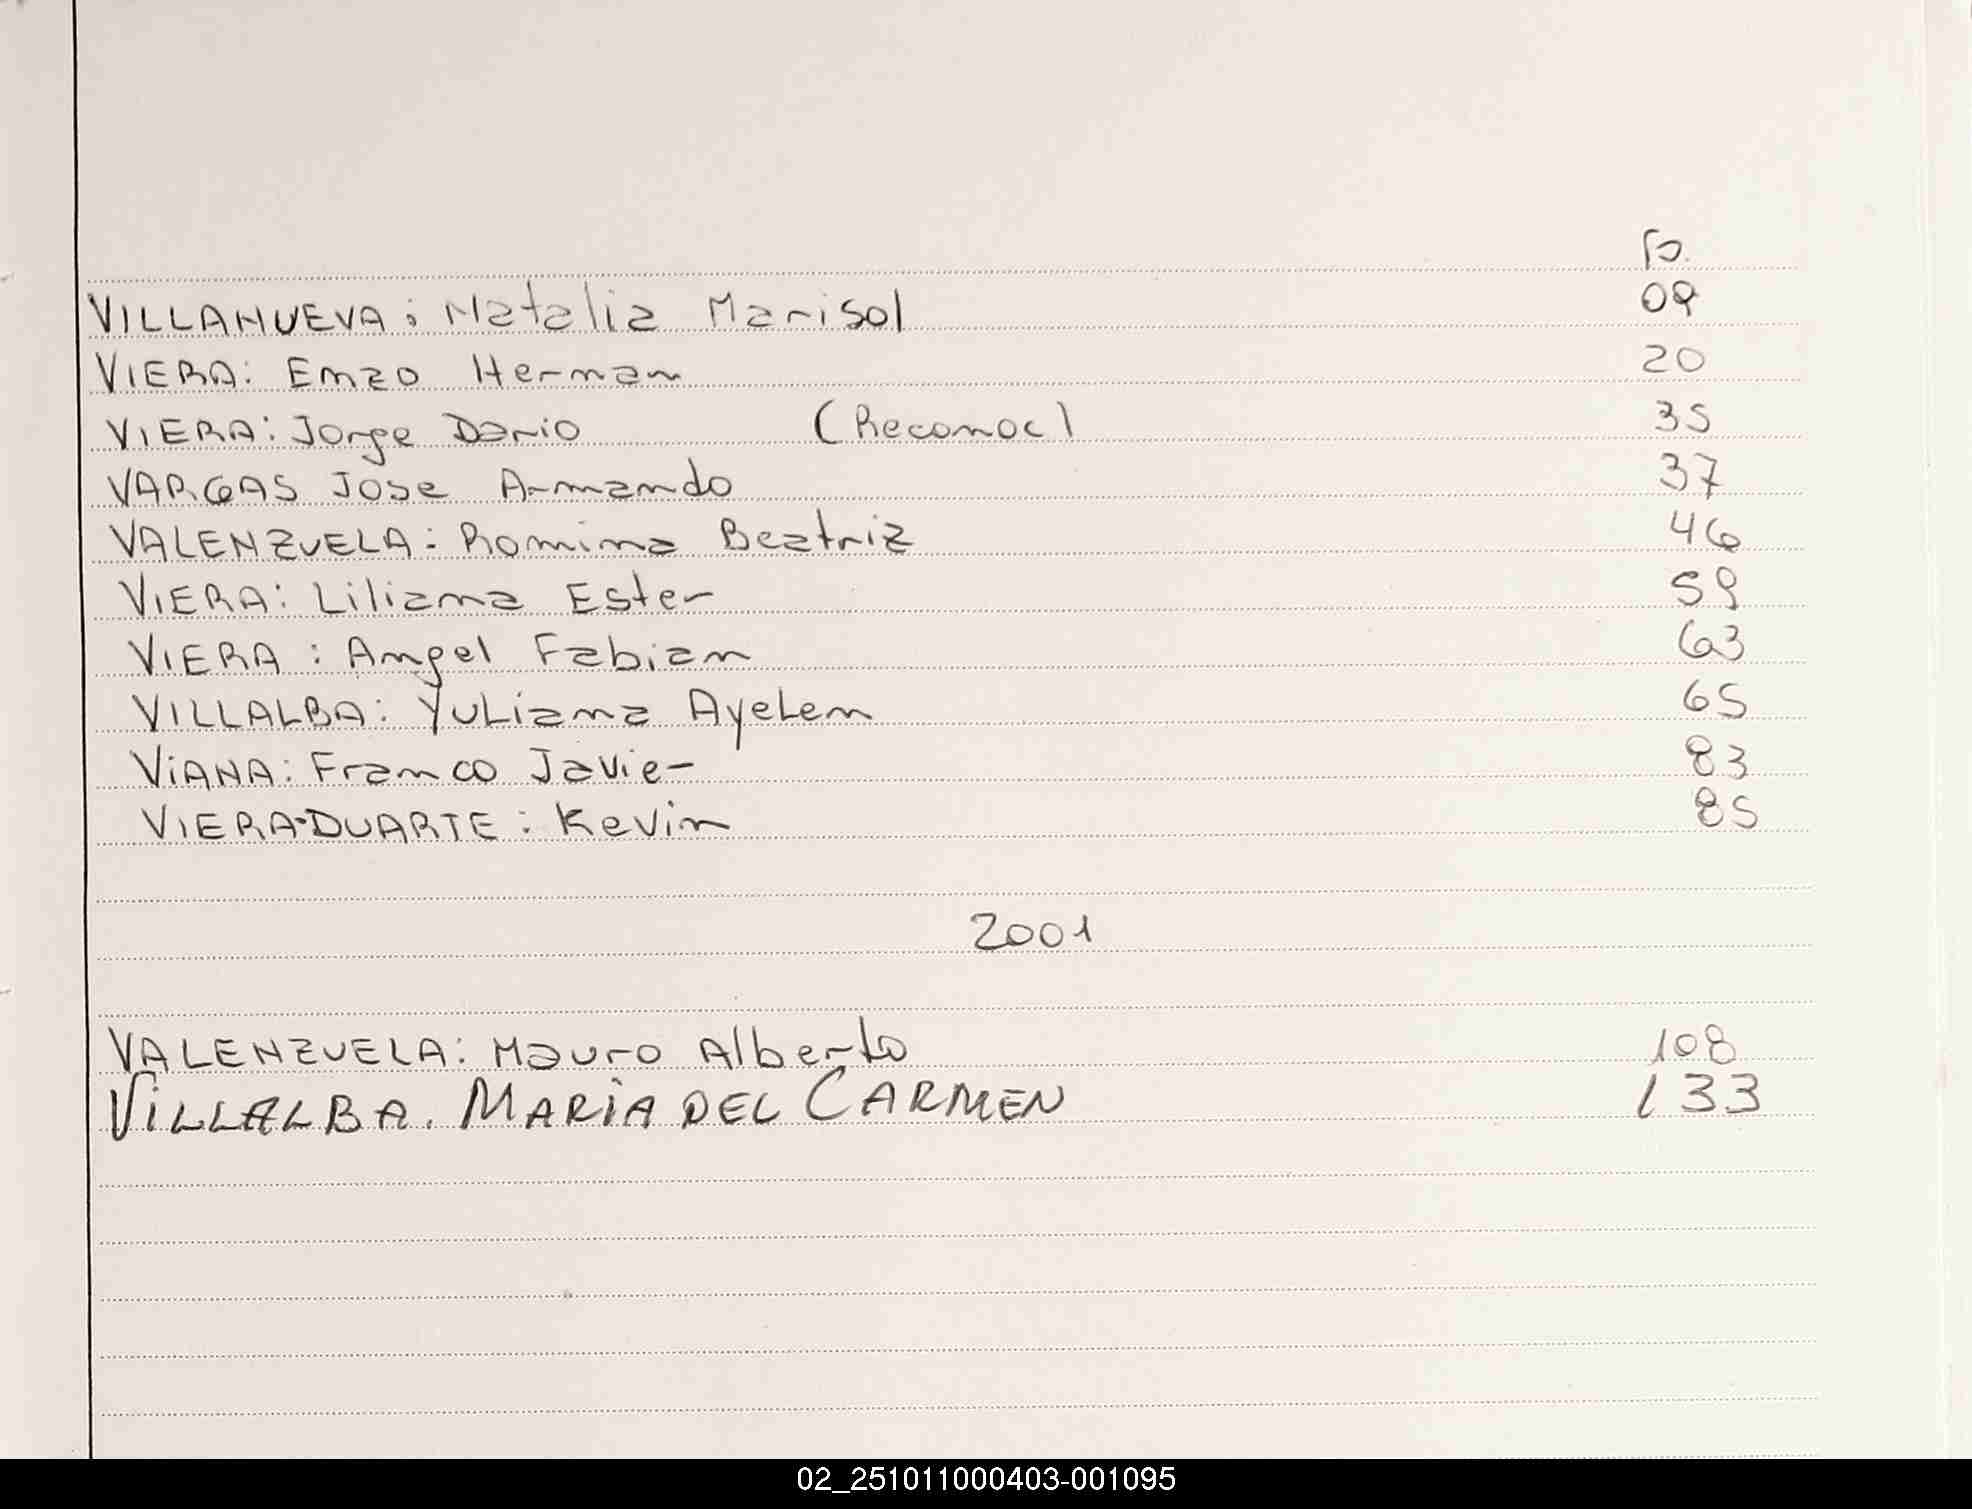 Fo.
VILLANUEVA: Natalia Marisol 09
VIERA: Enzo Hernan 20
VIERA: Jorge Dario (Reconoc) 35
VARGAS Jose Armando 37
VALENZUELA: Romina Beatriz 46
VIERA: Liliana Ester 59
VIERA: Angel Fabian 63
VILLALBA: Yuliana Ayelen 65
VIANA: Franco Javier 83
VIERA-DUARTE: Kevin 85
2001
VALENZUELA: Mauro Alberto 108
VILLALBA. MARIA DEL CARMEN 133
02_251011000403-001095